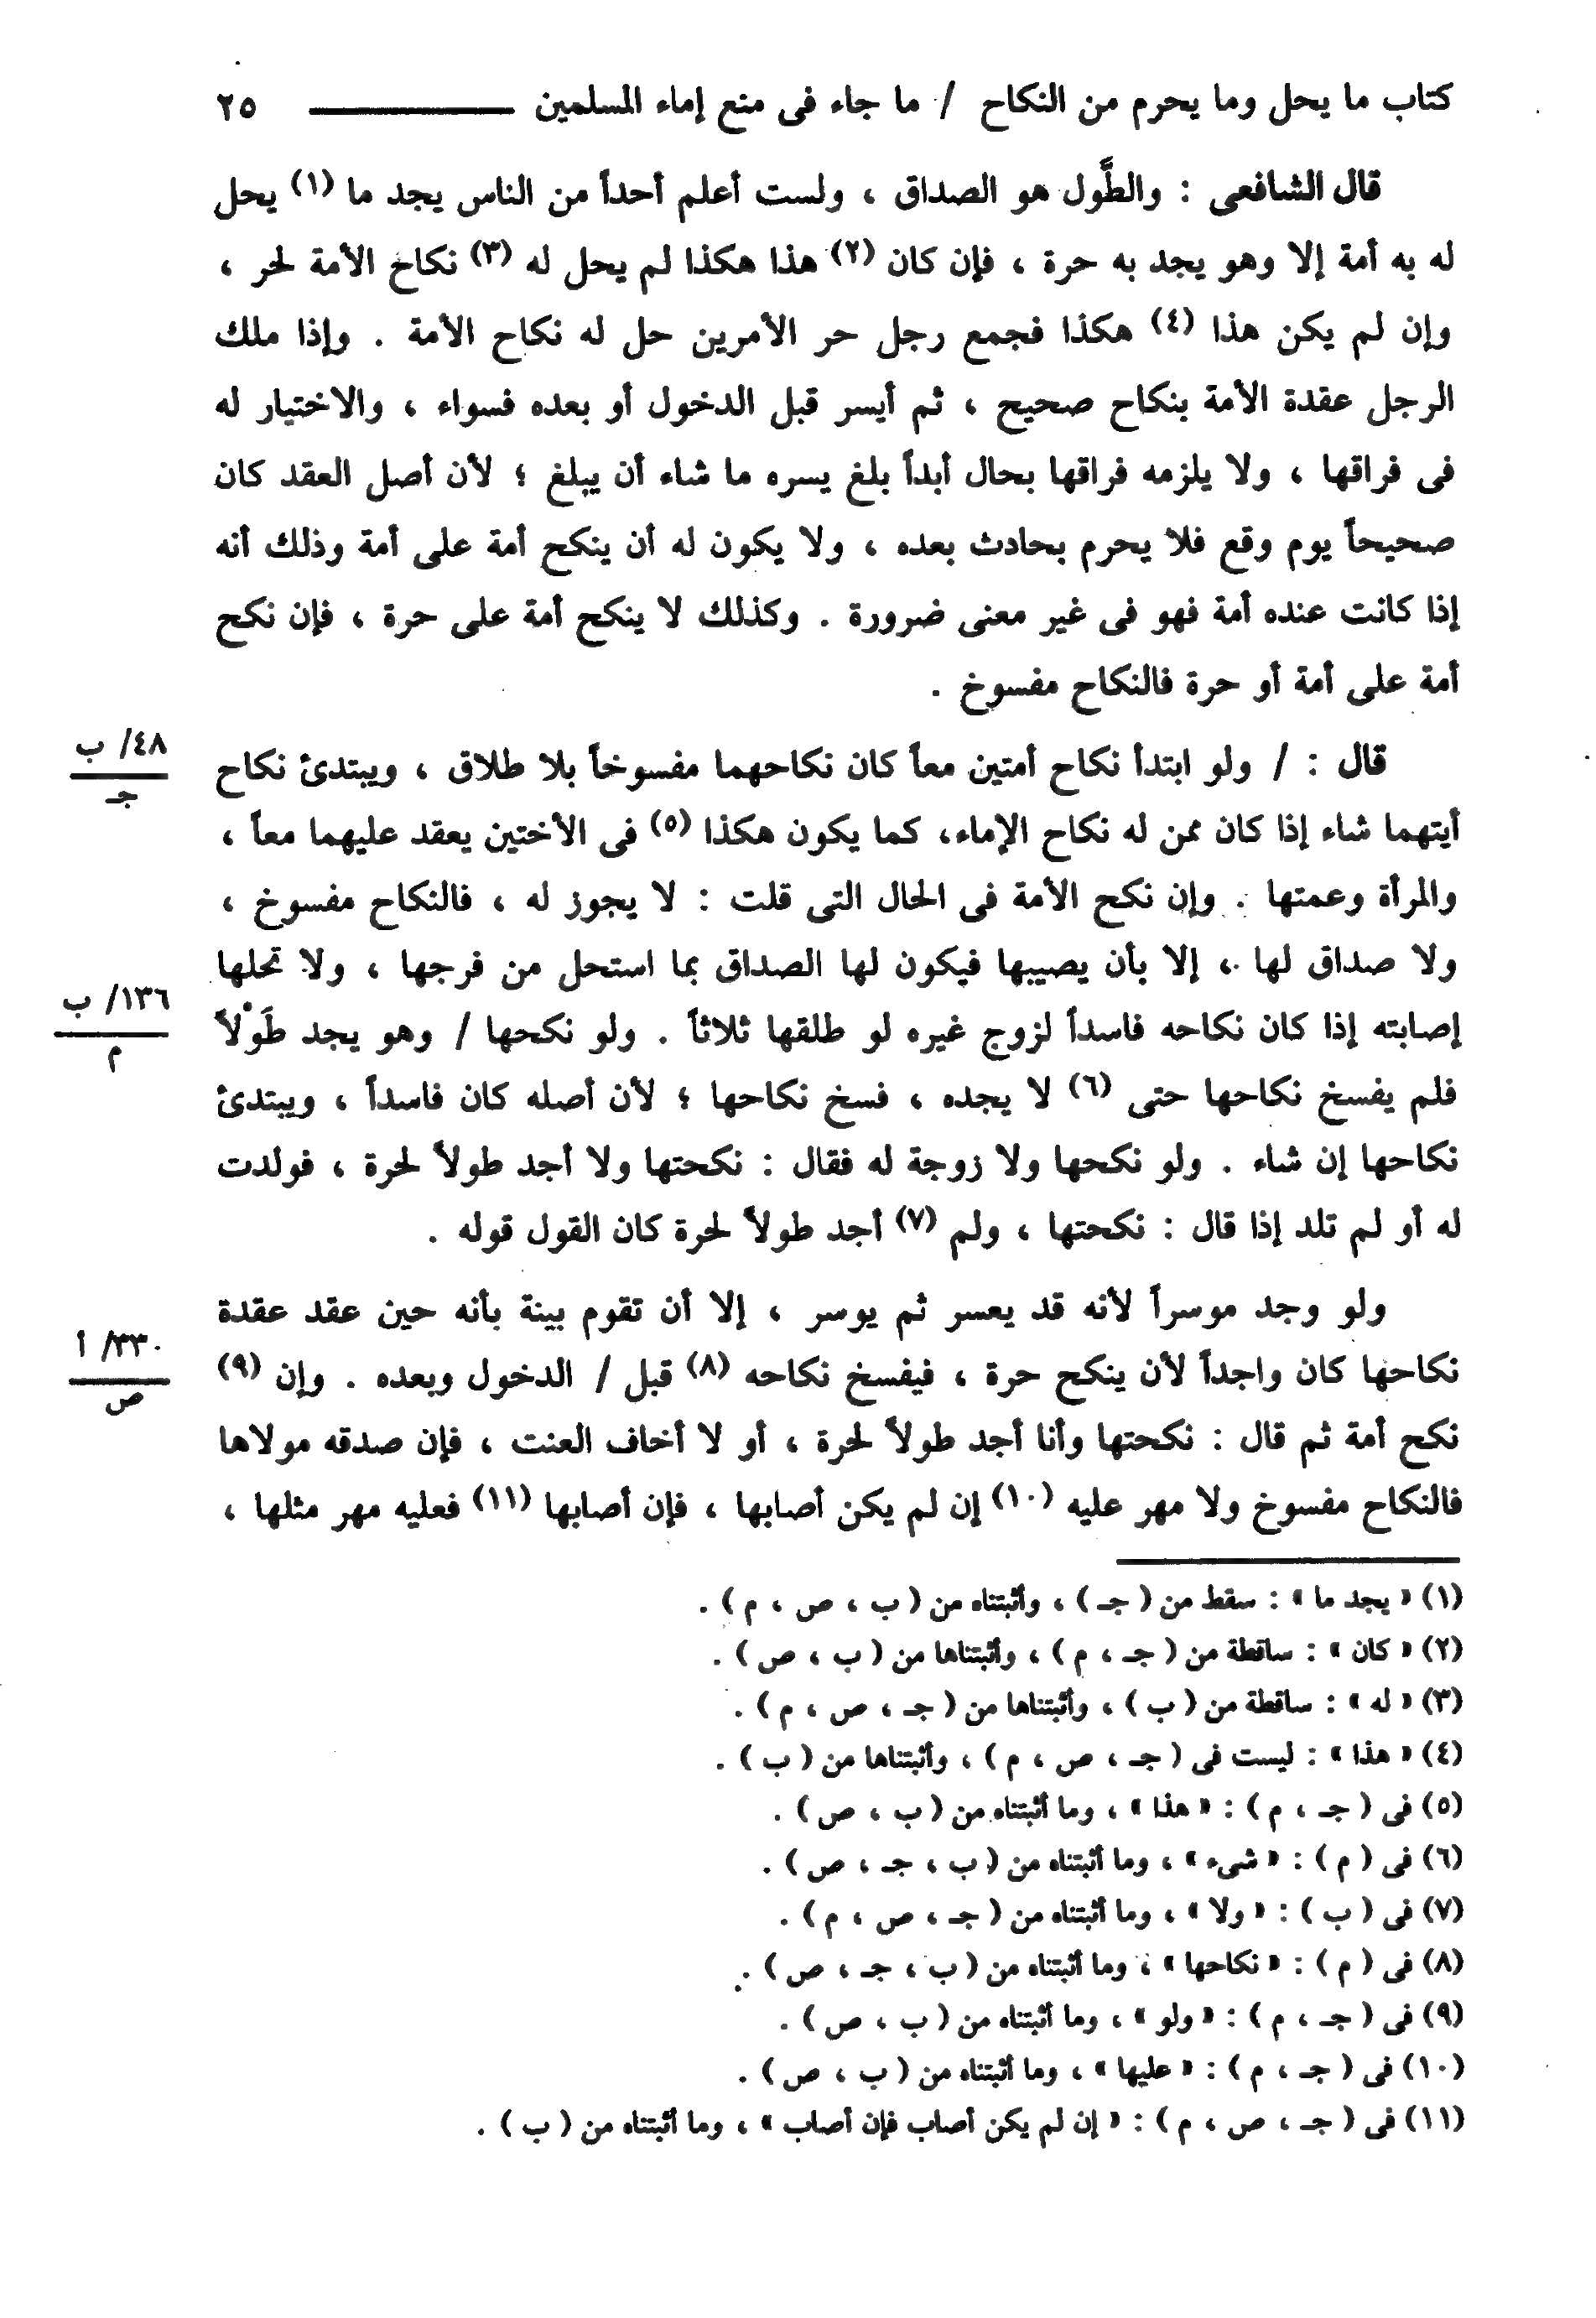 كتاب ما يحل وما يحرم من النكاح / ما جاء فى منع إماء المسلمين ــــــــــ ٢٥
قال الشافعى : والطَّول هو الصداق ، ولست أعلم أحداً من الناس يجد ما (١) يحل
له به أمة إلا وهو يجد به حرة ، فإن كان (٢) هذا هكذا لم يحل له (٣) نكاح الأمة لحر ،
وإن لم يكن هذا (٤) هكذا فجمع رجل حر الأمرين حل له نكاح الأمة . وإذا ملك
الرجل عقدة الأمة بنكاح صحيح ، ثم أيسر قبل الدخول أو بعده فسواء ، والاختيار له
فى فراقها ، ولا يلزمه فراقها بحال أبداً بلغ يسره ما شاء أن يبلغ ؛ لأن أصل العقد كان
صحيحاً يوم وقع فلا يحرم بحادث بعده ، ولا يكون له أن ينكح أمة على أمة وذلك أنه
إذا كانت عنده أمة فهو فى غير معنى ضرورة . وكذلك لا ينكح أمة على حرة ، فإن نكح
أمة على أمة أو حرة فالنكاح مفسوخ .
٤٨/ ب
جـ
قال : / ولو ابتدأ نكاح أمتين معاً كان نكاحهما مفسوخاً بلا طلاق ، ويبتدئ نكاح
أيتهما شاء إذا كان ممن له نكاح الإماء، كما يكون هكذا (٥) فى الأختين يعقد عليهما معاً ،
والمرأة وعمتها . وإن نكح الأمة فى الحال التى قلت : لا يجوز له ، فالنكاح مفسوخ ،
ولا صداق لها ، إلا بأن يصيبها فيكون لها الصداق بما استحل من فرجها ، ولا تحلها
١٣٦/ ب
م
إصابته إذا كان نكاحه فاسداً لزوج غيره لو طلقها ثلاثاً . ولو نكحها / وهو يجد طَوْلاً
فلم يفسخ نكاحها حتى (٦) لا يجده ، فسخ نكاحها ؛ لأن أصله كان فاسداً ، ويبتدئ
نكاحها إن شاء . ولو نكحها ولا زوجة له فقال : نكحتها ولا أجد طولاً لحرة ، فولدت
له أو لم تلد إذا قال : نكحتها ، ولم (٧) أجد طولاً لحرة كان القول قوله .
ولو وجد موسراً لأنه قد يعسر ثم يوسر ، إلا أن تقوم بينة بأنه حين عقد عقدة
٣٣٠/ أ
ص
نكاحها كان واجداً لأن ينكح حرة ، فيفسخ نكاحه (٨) قبل / الدخول وبعده . وإن (٩)
نكح أمة ثم قال : نكحتها وأنا أجد طولاً لحرة ، أو لا أخاف العنت ، فإن صدقه مولاها
فالنكاح مفسوخ ولا مهر عليه (١٠) إن لم يكن أصابها ، فإن أصابها (١١) فعليه مهر مثلها ،
(١) « يجد ما » : سقط من ( جـ ) ، وأثبتناه من ( ب ، ص ، م ) .
(٢) « كان » : ساقطة من ( جـ ، م ) ، وأثبتناها من ( ب ، ص ) .
(٣) « له » : ساقطة من ( ب ) ، وأثبتناها من ( جـ ، ص ، م ) .
(٤) « هذا » : ليست فى ( جـ ، ص ، م ) ، وأثبتناها من ( ب ) .
(٥) فى ( جـ ، م ) : « هذا » ، وما أثبتناه من ( ب ، ص ) .
(٦) فى ( م ) : « شىء » ، وما أثبتناه من ( ب ، جـ ، ص ) .
(٧) فى ( ب ) : « ولا » ، وما أثبتناه من ( جـ ، ص ، م ) .
(٨) فى ( م ) : « نكاحها » ، وما أثبتناه من ( ب ، جـ ، ص ) .
(٩) فى ( جـ ، م ) : « ولو » ، وما أثبتناه من ( ب ، ص ) .
(١٠) فى ( جـ ، م ) : « عليها » ، وما أثبتناه من ( ب ، ص ) .
(١١) فى ( جـ ، ص ، م ) : « إن لم يكن أصاب فإن أصاب » ، وما أثبتناه من ( ب ) .